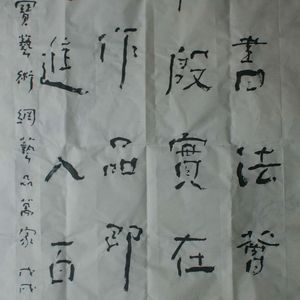 書法
殷實在
作品即
進入百
寶藝術網藝品萬家戊戌